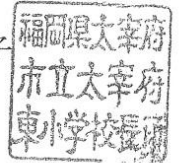 福岡県太宰府
市立太宰府
東小学校長印